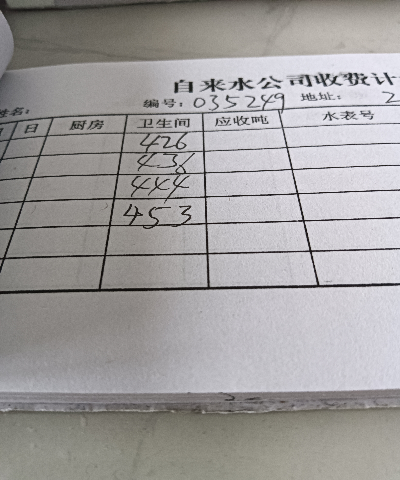 自来水公司收费计
姓名: 编号: 035249 地址: 2
日 厨房 卫生间 应收吨 水表号
426
436
444
453